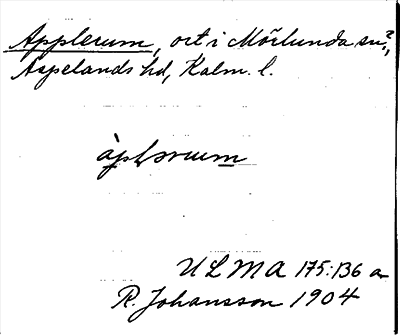 Applerum, ort i Mörlunda sn?,
Aspelands hd, Kalm. l.
ULMA 175:136 a
R. Johansson 1904